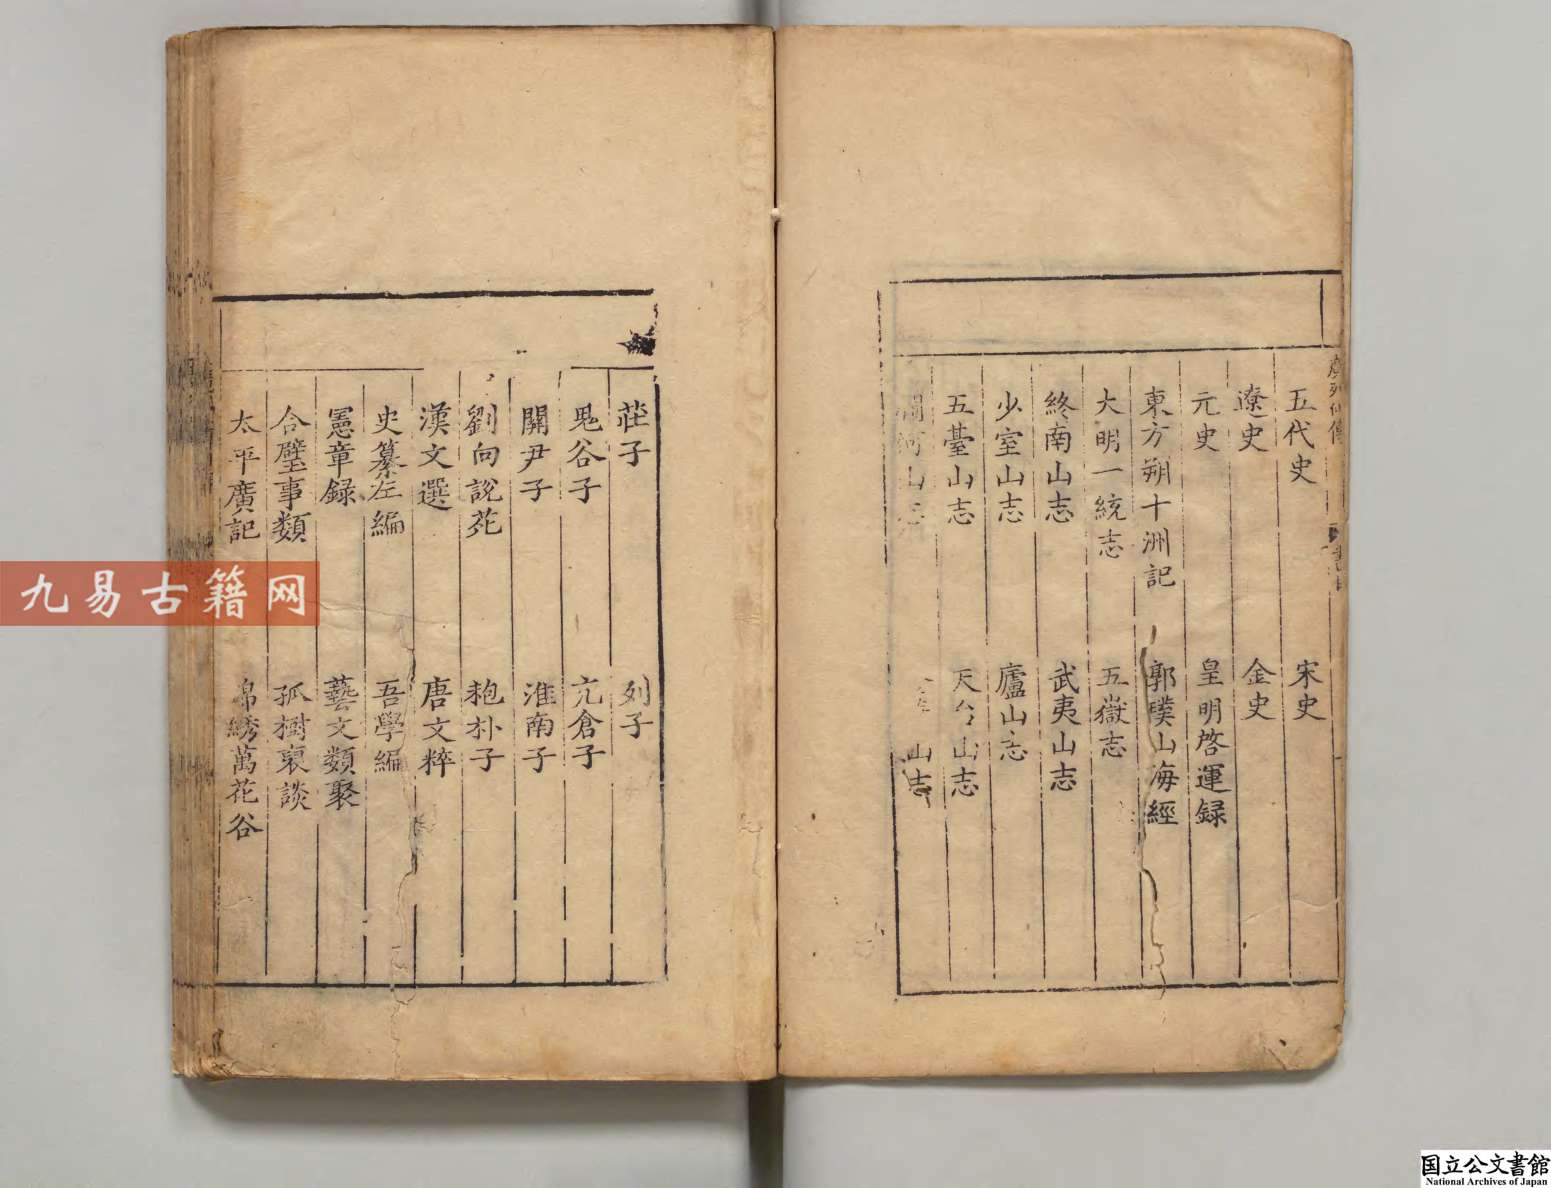 五代史 宋史
遼史 金史
元史 皇明啓運録
東方朔十洲記 郭璞山海經
大明一統志 五嶽志
終南山志 武夷山志
少室山志 廬山志
五臺山志 天台山志
山志 山志
莊子 列子
鬼谷子 亢倉子
關尹子 淮南子
劉向說苑 抱朴子
漢文選 唐文粹
史纂左編 吾學編
憲章録 藝文類聚
合璧事類 孤樹裒談
太平廣記 錦綉萬花谷
九易古籍网
国立公文書館
National Archives of Japan